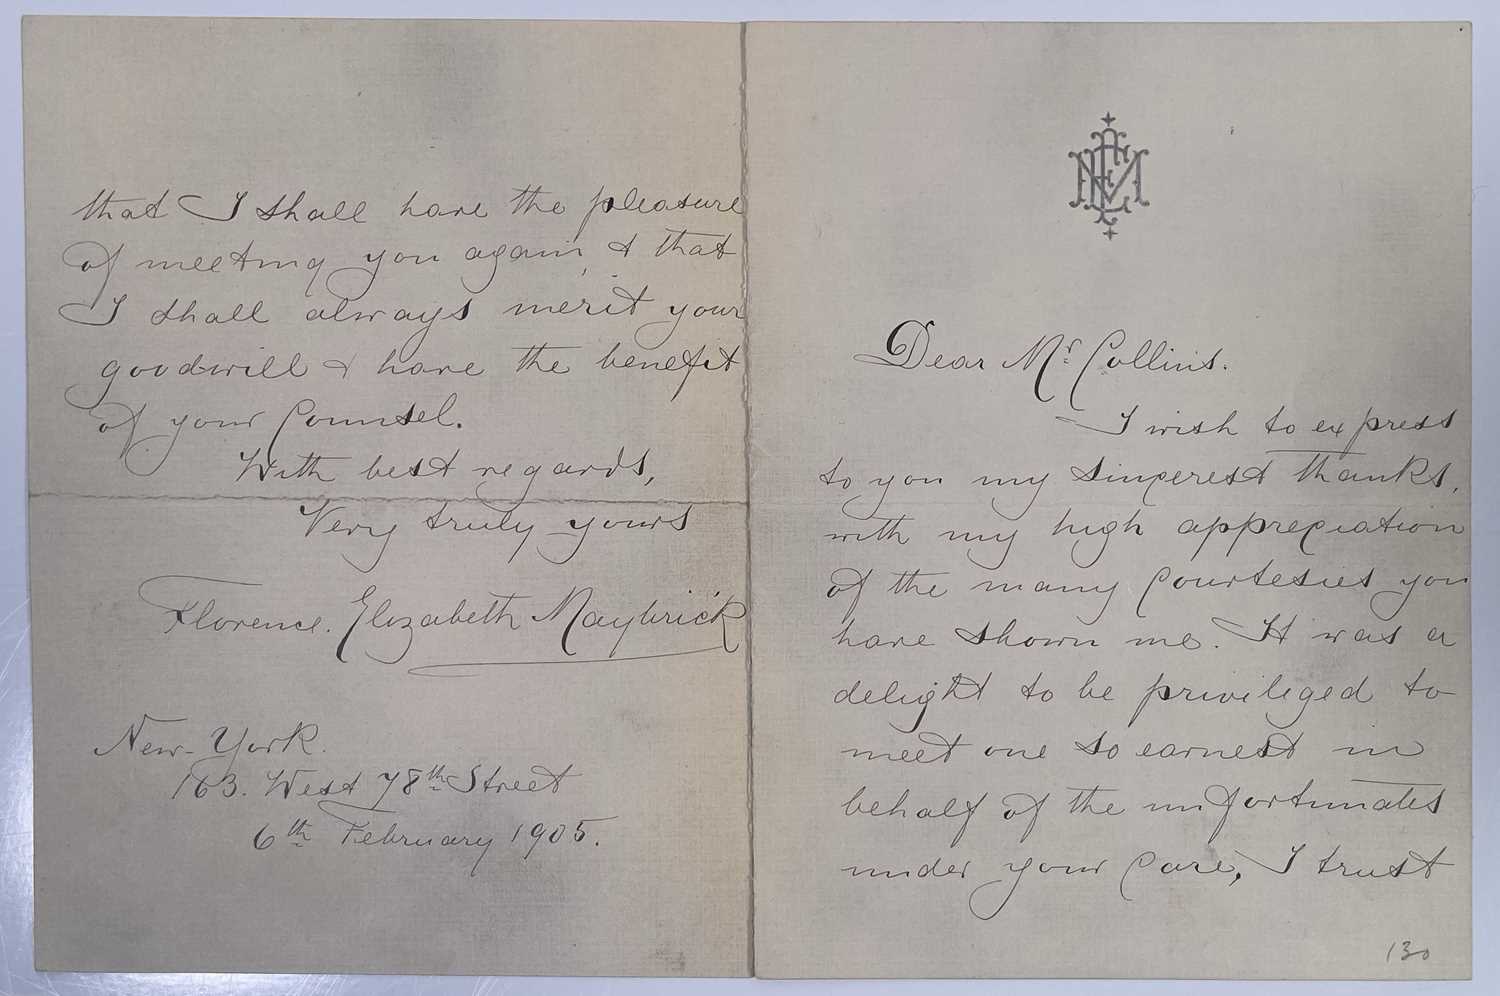 Dear Mr. Collins.
I wish to express
to you my sincerest thanks,
with my high appreciation
of the many courtesies you
have shown me. It was a
delight to be privileged to
meet one so earnest in
behalf of the unfortunates
under your care, I trust
130
that I shall have the pleasure
of meeting you again, & that
I shall always merit your
goodwill & have the benefit
of your Counsel.
With best regards,
Very truly yours
Florence. Elizabeth Maybrick
New-York.
163. West 78th Street
6th February 1905.